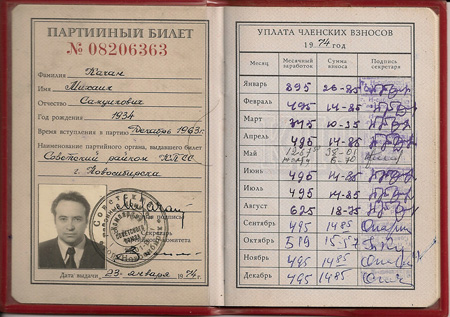 ПАРТИЙНЫЙ БИЛЕТ
№ 08206363
Фамилия Качан
Имя Михаил
Отчество Самуилович
Год рождения 1934
Время вступления в партию Декабрь 1963г.
Наименование партийного органа, выдавшего билет
Советский райком КПСС
г. Новосибирска
Дата выдачи 23 января 1974 г.
УПЛАТА ЧЛЕНСКИХ ВЗНОСОВ
1974 год
Месяц Месячный заработок Сумма взноса Подпись секретаря
Январь 895 26-85
Февраль 495 14-85
Март 345 10-35
Апрель 495 14-85
Май
Июнь 495 14-85
Июль 495 14-85
Август 625 18-75
Сентябрь 495 1485
Октябрь 519 15-57
Ноябрь 495 1485
Декабрь 495 1485